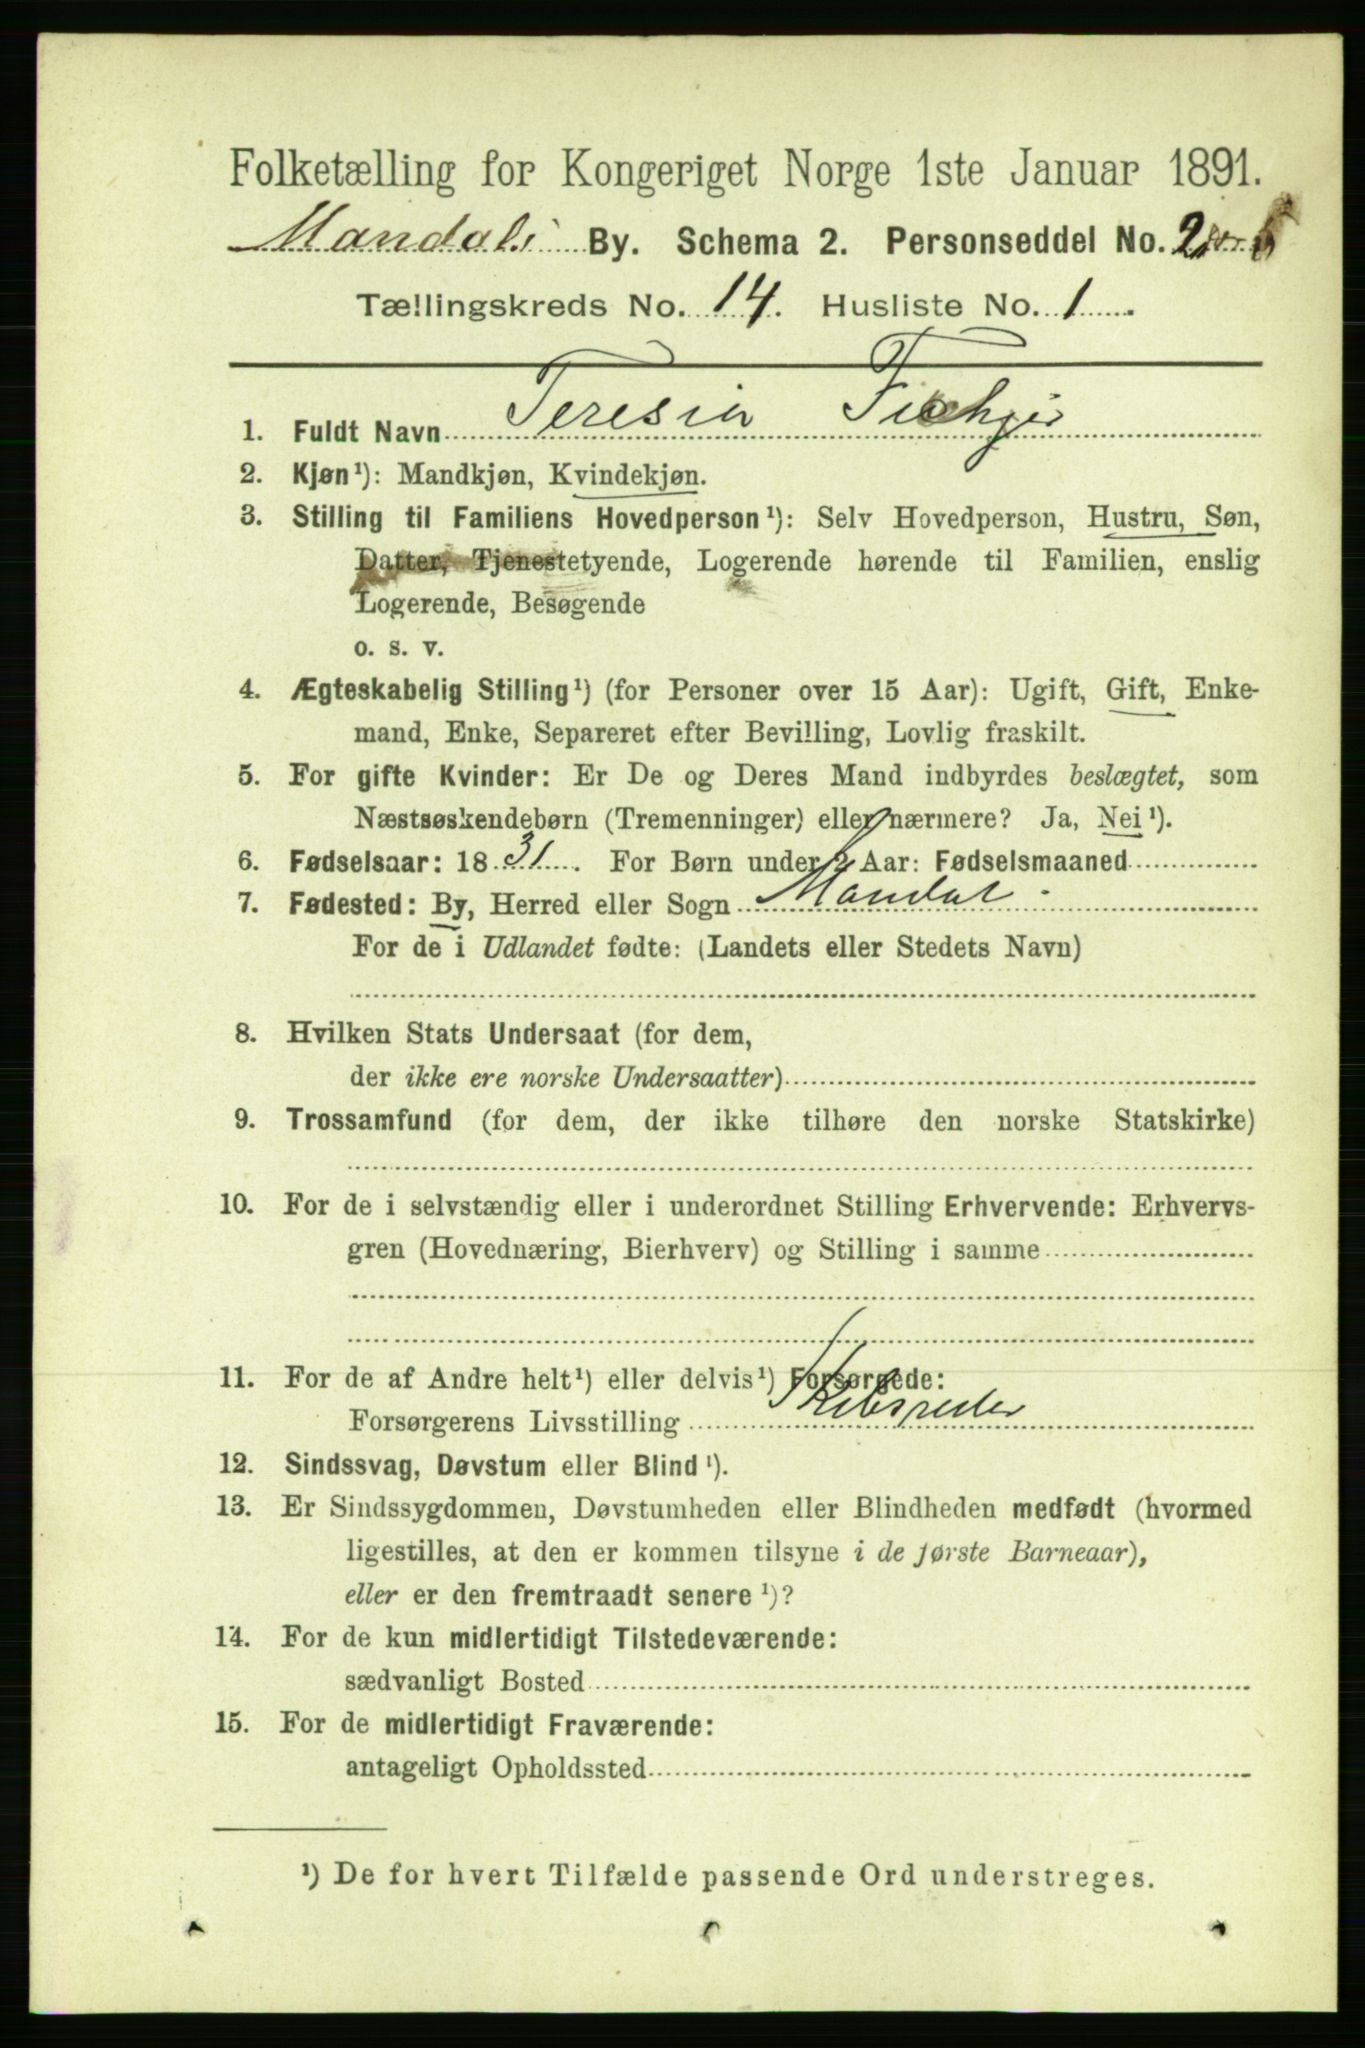 Folketælling for Kongeriget Norge 1ste Januar 1891.
Mandals By. Schema 2. Personseddel No. 2
Tællingskreds No. 14. Husliste No. 1.
1. Fuldt Navn Teresia
2. Kjøn¹): Mandkjøn, Kvindekjøn.
3. Stilling til Familiens Hovedperson¹): Selv Hovedperson, Hustru, Søn,
Datter, Tjenestetyende, Logerende hørende til Familien, enslig
Logerende, Besøgende
o. s. v.
4. Ægteskabelig Stilling¹) (for Personer over 15 Aar): Ugift, Gift, Enke-
mand, Enke, Separeret efter Bevilling, Lovlig fraskilt.
5. For gifte Kvinder: Er De og Deres Mand indbyrdes beslægtet, som
Næstsøskendebørn (Tremenninger) eller nærmere? Ja, Nei¹).
6. Fødselsaar: 1831. For Børn under 2 Aar: Fødselsmaaned
7. Fødested: By, Herred eller Sogn Mandal
For de i Udlandet fødte: (Landets eller Stedets Navn)
8. Hvilken Stats Undersaat (for dem,
der ikke ere norske Undersaatter)
9. Trossamfund (for dem, der ikke tilhøre den norske Statskirke)
10. For de i selvstændig eller i underordnet Stilling Erhvervende: Erhvervs-
gren (Hovednæring, Bierhverv) og Stilling i samme
11. For de af Andre helt¹) eller delvis¹) Forsørgede:
Forsørgerens Livsstilling Skibsreder
12. Sindssvag, Døvstum eller Blind¹).
13. Er Sindssygdommen, Døvstumheden eller Blindheden medfødt (hvormed
ligestilles, at den er kommen tilsyne i de første Barneaar),
eller er den fremtraadt senere¹)?
14. For de kun midlertidigt Tilstedeværende:
sædvanligt Bosted
15. For de midlertidigt Fraværende:
antageligt Opholdssted
¹) De for hvert Tilfælde passende Ord understreges.